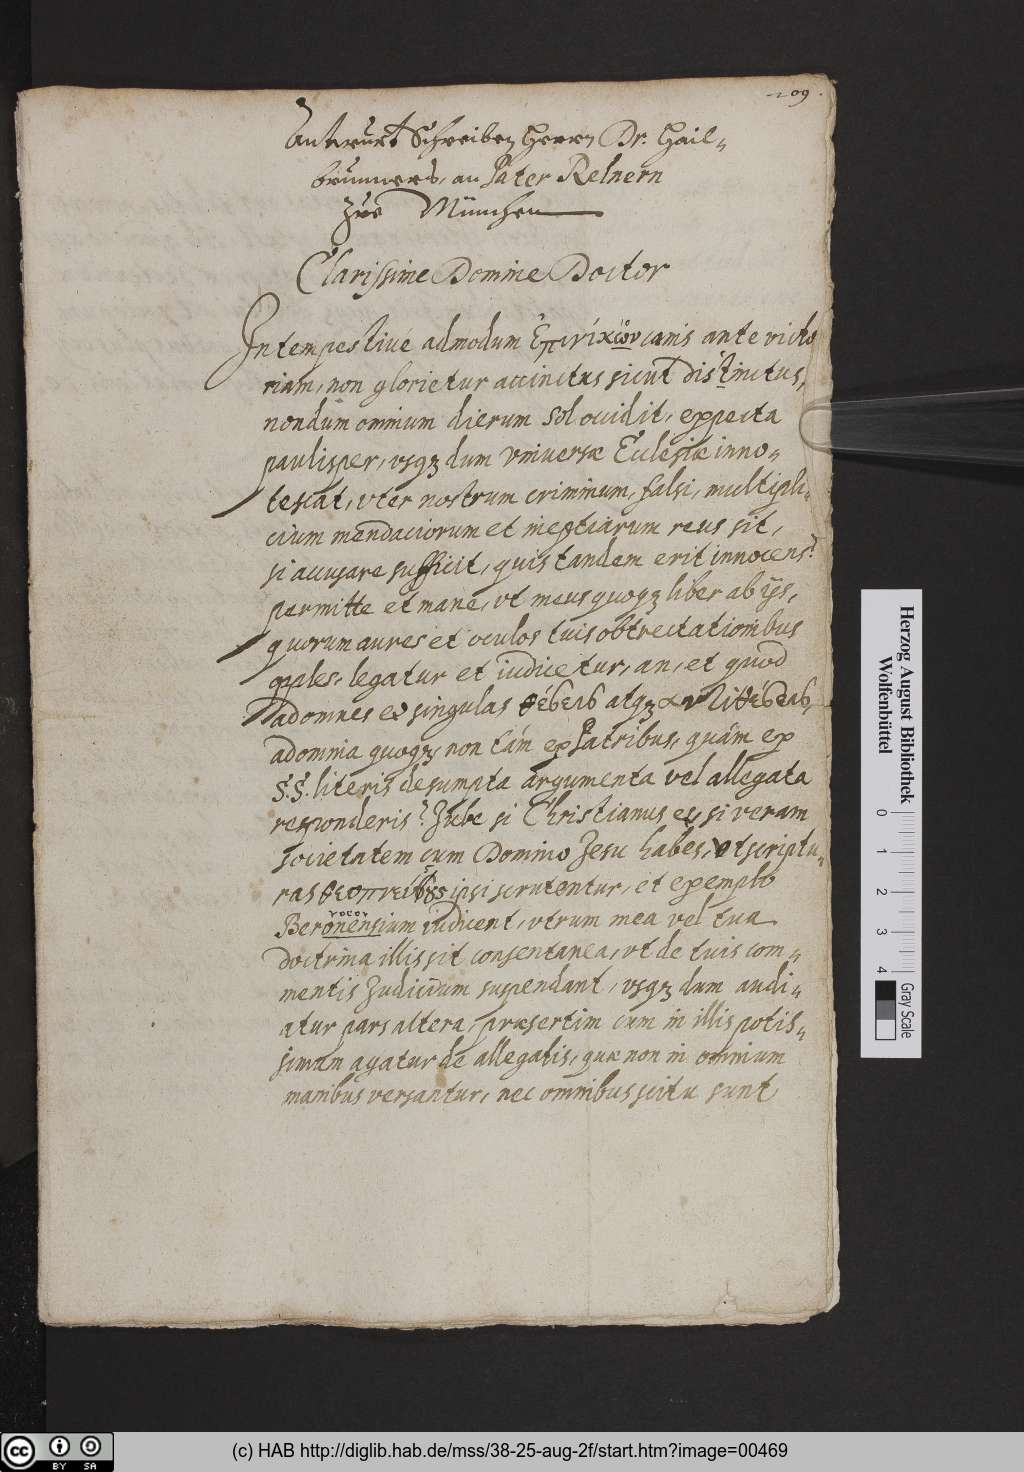 209
Antwurt Schreiben Herrn Dr. Hail-
brunners, an Pater Relnern
zue München
Clarissime Domine Doctor
Intempestivé admodum Ἐπινίκιον canis ante victo
riam, non glorietur accinctus sicut distinctus,
nondum omnium dierum Sol occidit, expecta
paulisper, vsqz dum vniversæ Ecclesiæ inno-
tescat, vter nostrum criminum, falsi, multipli-
cium mendaciorum et ineptiarum reus sit,
si accusare sufficit, quis tandem erit innocens?
permitte et mane, vt meus quoqz liber ab ijs,
quorum aures et oculos tuis obtrectationibus
opples, legatur et iudicetur, an, et quod
ad omnes et singulas θέσεις atqz ἀντιθέσεις,
ad omnia quoqz, non tám ex Patribus, quàm ex
S.S. literis desumpta argumenta vel allegata
responderis? Jube si Christianus es, si veram
societatem cum Domino Jesu habes, vt scriptu-
ras θεοπνεύστους ipsi scrutentur, et exemplo
rocor
Beronensium iudicent, vtrum mea vel tua
doctrina illis sit consentanea, vt de tuis com-
mentis Judicium suspendant, vsqz dum audi-
atur pars altera, præsertim cum in illis potis-
simum agatur de allegatis, quæ non in omnium
manibus versantur, nec omnibus scitu sunt
Herzog August Bibliothek
Wolfenbüttel
0 1 2 3 4
Gray Scale
cc BY SA
(c) HAB http://diglib.hab.de/mss/38-25-aug-2f/start.htm?image=00469